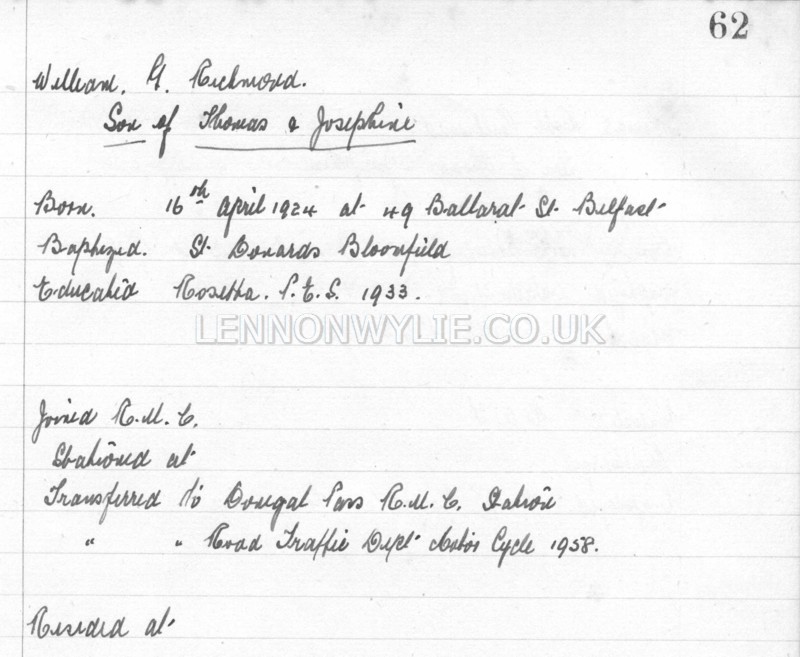 62
William. G. Richmond.
Son of Thomas & Josephine
Born. 16th April 1924 at 49 Ballarat St. Belfast
Baptized. St. Donards Bloomfield
Educated Rosetta. P.E.S. 1933.
LENNONWYLIE.CO.UK
Joined R.U.C.
Stationed at
Transferred to Donegal Pass R.U.C. Station
" " Road Traffic Dept Motor Cycle 1958.
Resided at